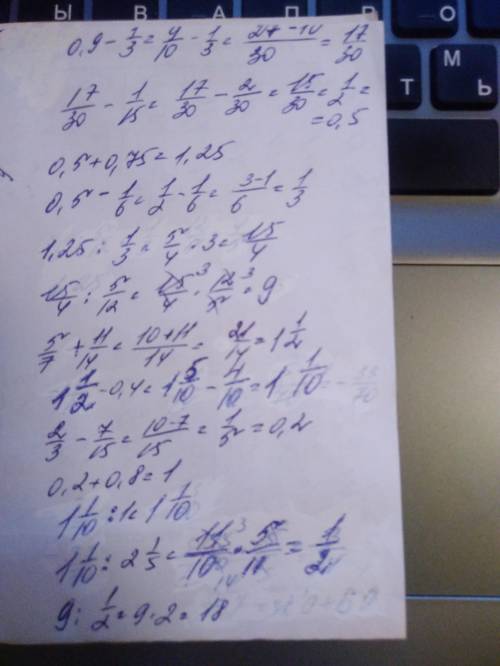 О
Т
Ь
0,9 - 1/3 = 9/10 - 1/3 = 27-10/30 = 17/30
17/30 - 1/15 = 17/30 - 2/30 = 15/30 = 1/2 =
= 0,5
0,5 + 0,75 = 1,25
0,5 - 1/6 = 1/2 - 1/6 = 3-1/6 = 1/3
1,25 : 1/3 = 5/4 · 3 = 15/4
15/4 : 5/12 = 15/4 · 12/5 = 9
5/7 + 11/14 = 10+11/14 = 21/14 = 1 1/2
1 1/2 - 0,4 = 1 5/10 - 4/10 = 1 1/10
2/3 - 7/15 = 10-7/15 = 1/5 = 0,2
0,2 + 0,8 = 1
1 1/10 : 1 = 1 1/10
1 1/10 : 2 1/5 = 11/10 · 5/11 = 1/2
9 : 1/2 = 9 · 2 = 18